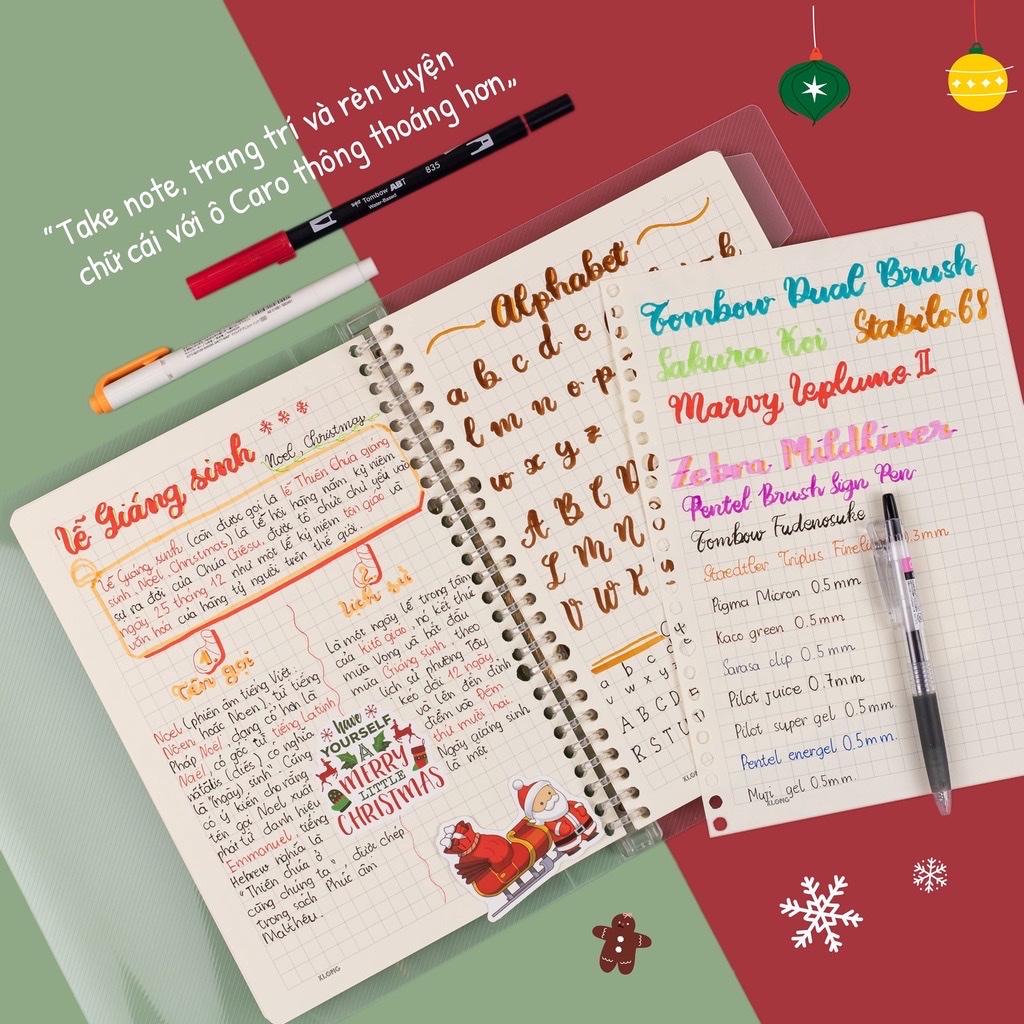 "Take note, trang trí và rèn luyện
chữ cái với ô Caro thông thoáng hơn„
Tombow ABT
Water-Based
835
Lễ Giáng sinh
Noel, Christmas
Lễ Giáng sinh (còn được gọi là lễ Thiên Chúa giáng
sinh, Noel, Christmas) là lễ hội hàng năm kỷ niệm
sự ra đời của Chúa Giêsu, được tổ chức chủ yếu vào
ngày 25 tháng 12 như một lễ kỷ niệm tôn giáo và
văn hoá của hàng tỷ người trên thế giới.
1.
Tên gọi
Noel (phiên âm tiếng Việt:
Nôen hoặc Noen), từ tiếng
Pháp Noël, dạng cổ hơn là
Naël, có gốc từ tiếng Latinh
natālis (diēs) có nghĩa
là "(ngày) sinh". Cũng
có ý kiến cho rằng
tên gọi Noel xuất
phát từ danh hiệu
Emmanuel, tiếng
Hebrew nghĩa là
"Thiên chúa ở
cùng chúng ta", được chép
trong sách Phúc âm
Matthêu.
Lịch sử
Là một ngày lễ trọng tâm
của Kitô giáo, nó kết thúc
mùa Vọng và bắt đầu
mùa Giáng sinh, theo
lịch sử phương Tây
kéo dài 12 ngày
và lên đến đỉnh
điểm vào Đêm
thứ mười hai.
Ngày giáng sinh
là một
have
YOURSELF
A
MERRY
LITTLE
CHRISTMAS
KLONG
Alphabet
a b c d e
l m n o p
w x y z
A B C D
L M N
V W X
a b c d
w x y z
A B C D
R S T U
KLONG
Tombow Dual Brush
Sakura Koi
Stabilo 68
Marvy Leplume II
Zebra Mildliner
Pentel Brush Sign Pen
Tombow Fudenosuke
Staedtler Triplus Fineli 0.3mm
Pigma Micron 0.5mm
Kaco green 0.5mm
Sarasa clip 0.5mm
Pilot juice 0.7mm
Pilot super gel 0.5mm.
Pentel energel 0.5mm.
Muji gel 0.5mm.
KLONG